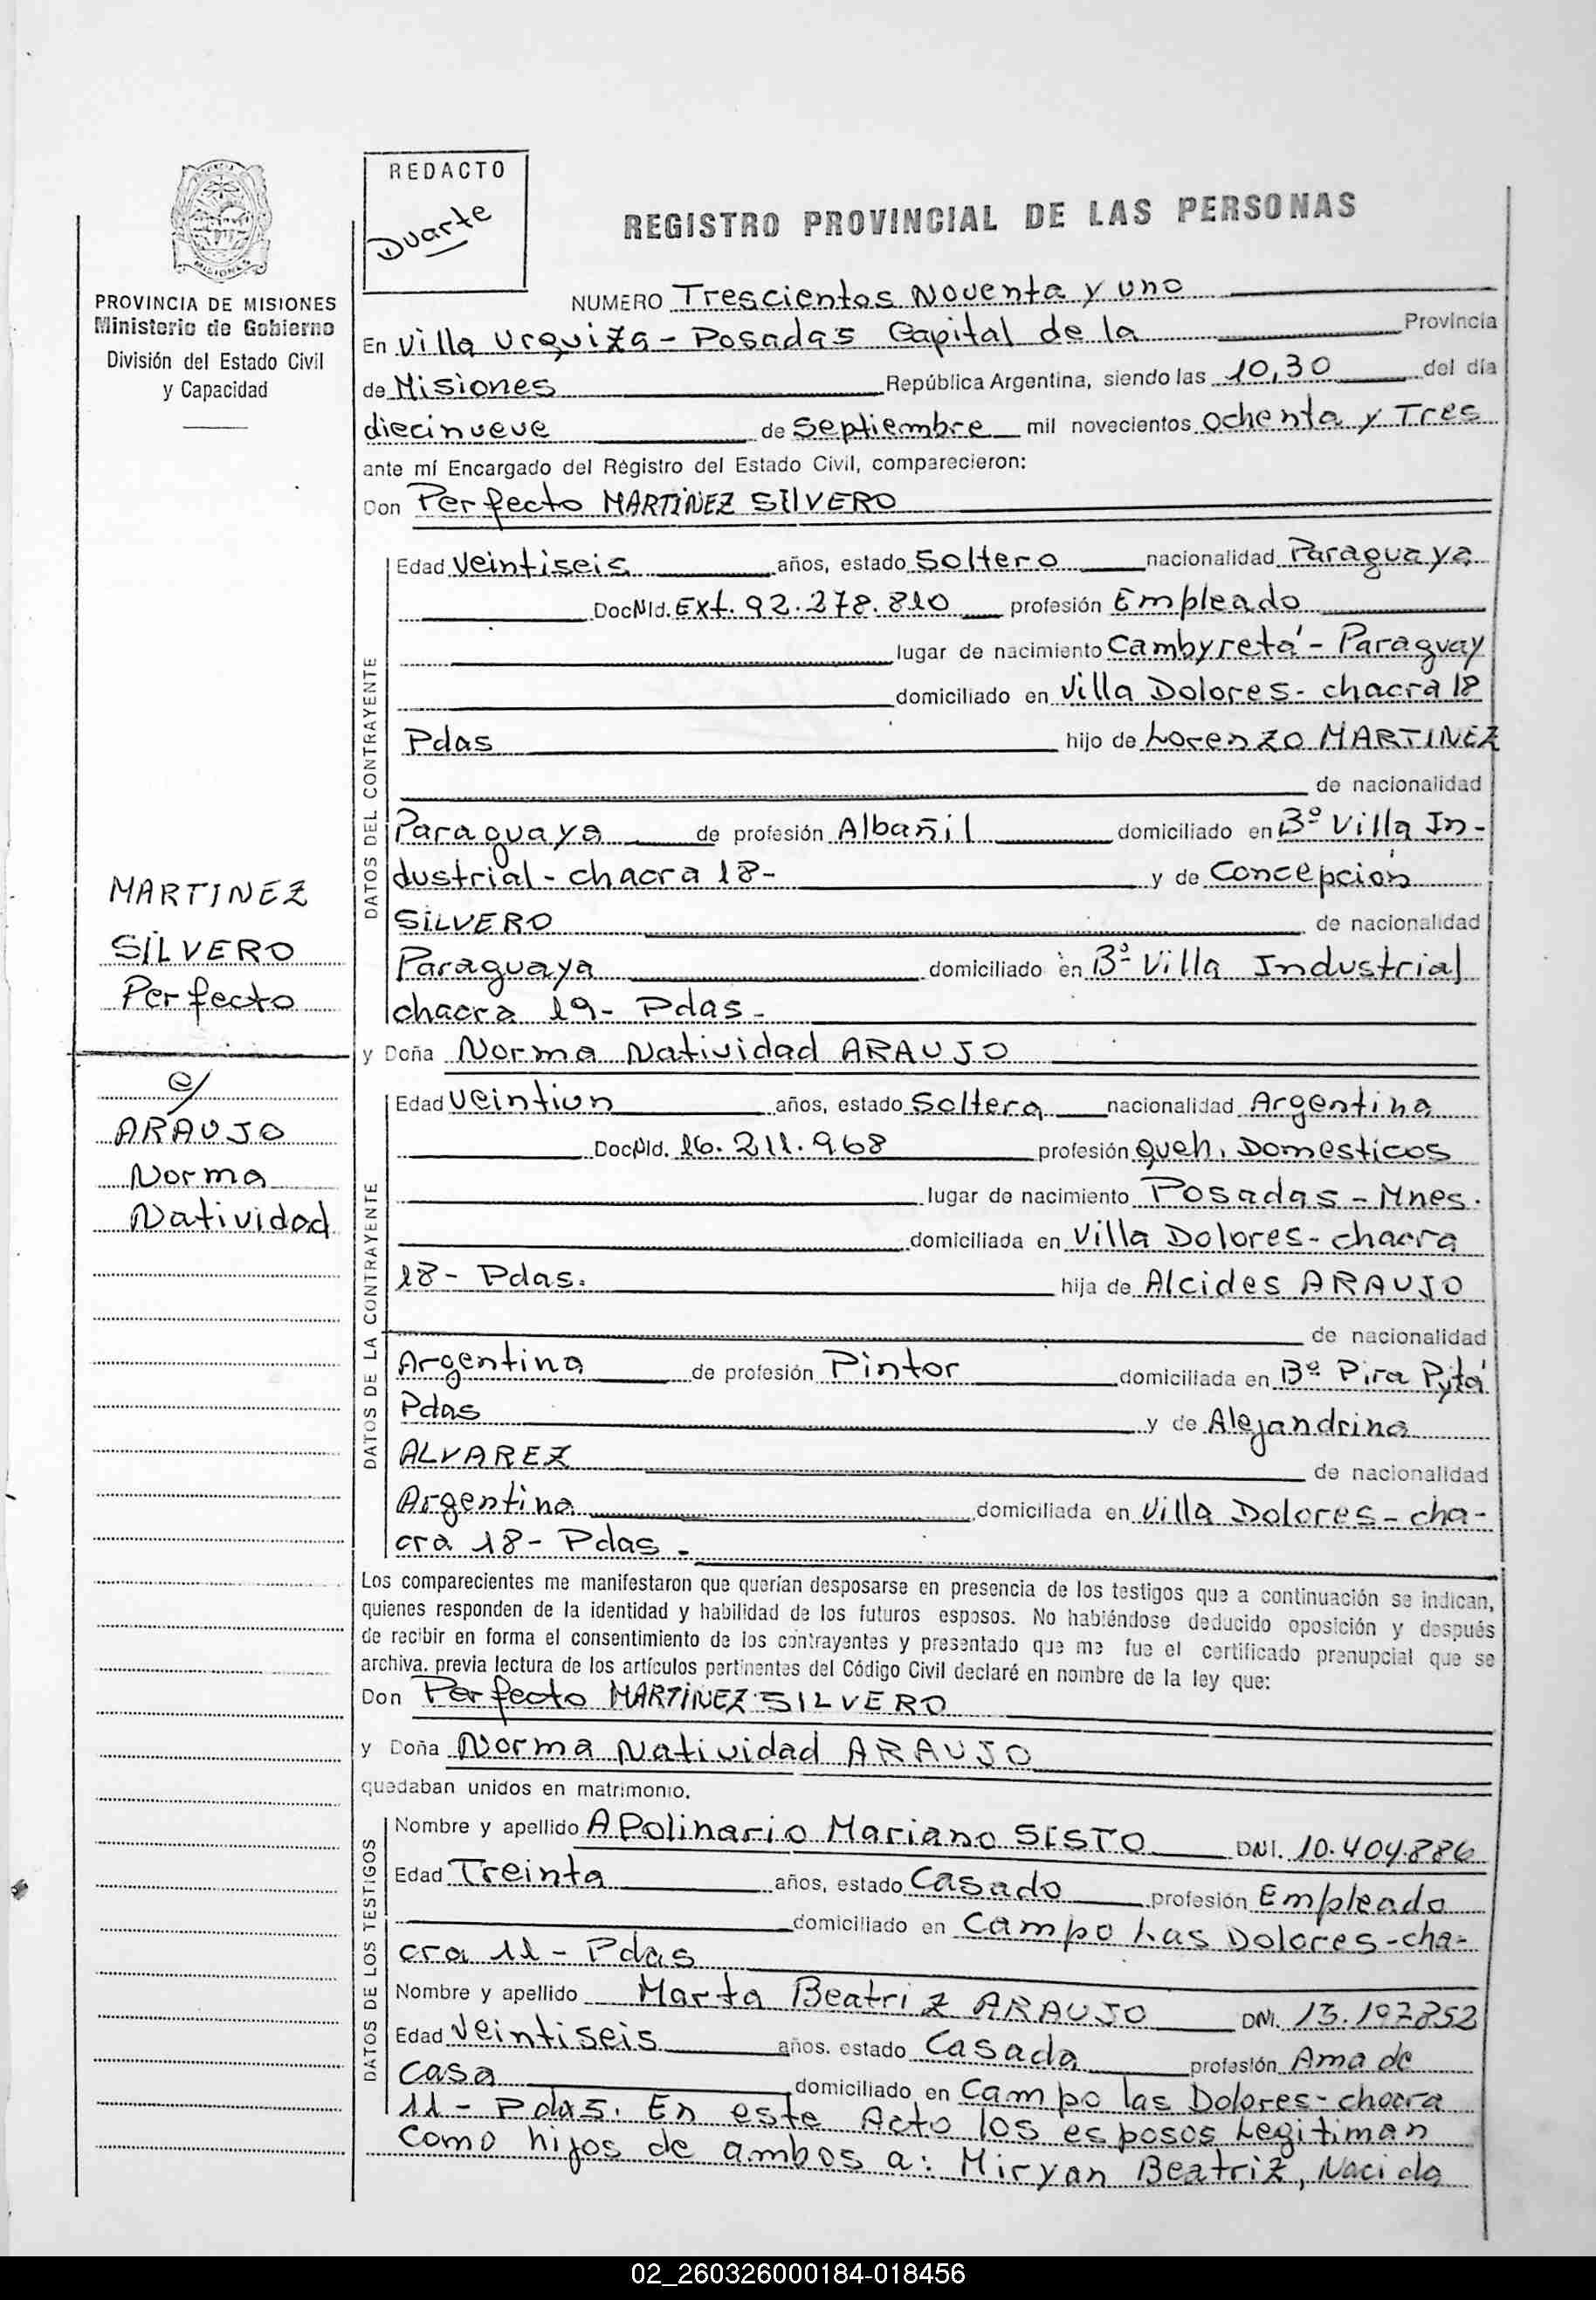 REDACTO
Duarte
MISIONES
PROVINCIA DE MISIONES
Ministerio de Gobierno
División del Estado Civil
y Capacidad
REGISTRO PROVINCIAL DE LAS PERSONAS
NUMERO Trescientos Noventa y uno
En Villa Urquiza - Posadas Capital de la Provincia
de Misiones República Argentina, siendo las 10,30 del día
diecinueve de Septiembre mil novecientos ochenta y Tres
ante mí Encargado del Registro del Estado Civil, comparecieron:
Don Perfecto MARTINEZ SILVERO
DATOS DEL CONTRAYENTE
Edad Veintiseis años, estado Soltero nacionalidad Paraguaya
Doc Nld. Ext. 92.278.810 profesión Empleado
lugar de nacimiento Cambyretá - Paraguay
domiciliado en Villa Dolores - chacra 18
Pdas hijo de Lorenzo MARTINEZ
de nacionalidad
Paraguaya de profesión Albañil domiciliado en Bº Villa In-
dustrial - chacra 18- y de Concepción
SILVERO de nacionalidad
Paraguaya domiciliado en Bº Villa Industrial
chacra 19- Pdas -
MARTINEZ
SILVERO
Perfecto
c/
ARAUJO
Norma
Natividad
y Doña Norma Natividad ARAUJO
DATOS DE LA CONTRAYENTE
Edad Veintiun años, estado Soltera nacionalidad Argentina
Doc Nld. 16.211.968 profesión queh. Domesticos
lugar de nacimiento Posadas - Mnes.
domiciliada en Villa Dolores - chacra
18 - Pdas. hija de Alcides ARAUJO
de nacionalidad
Argentina de profesión Pintor domiciliada en Bº Pira Pytá
Pdas y de Alejandrina
ALVAREZ de nacionalidad
Argentina domiciliada en Villa Dolores - cha-
cra 18 - Pdas -
Los comparecientes me manifestaron que querían desposarse en presencia de los testigos que a continuación se indican,
quienes responden de la identidad y habilidad de los futuros esposos. No habiéndose deducido oposición y después
de recibir en forma el consentimiento de los contrayentes y presentado que me fue el certificado prenupcial que se
archiva, previa lectura de los artículos pertinentes del Código Civil declaré en nombre de la ley que:
Don Perfecto MARTINEZ SILVERO
y Doña Norma Natividad ARAUJO
quedaban unidos en matrimonio.
DATOS DE LOS TESTIGOS
Nombre y apellido APolinario Mariano SISTO DNI. 10.404.886
Edad Treinta años, estado Casado profesión Empleado
domiciliado en Campo Las Dolores - cha-
cra 11 - Pdas
Nombre y apellido Marta Beatriz ARAUJO DNI. 13.197852
Edad Veintiseis años, estado Casada profesión Ama de
casa domiciliado en Campo las Dolores - chacra
11 - Pdas. En este Acto los esposos Legitiman
como hijos de ambos a: Miryan Beatriz, Nacida
02_260326000184-018456